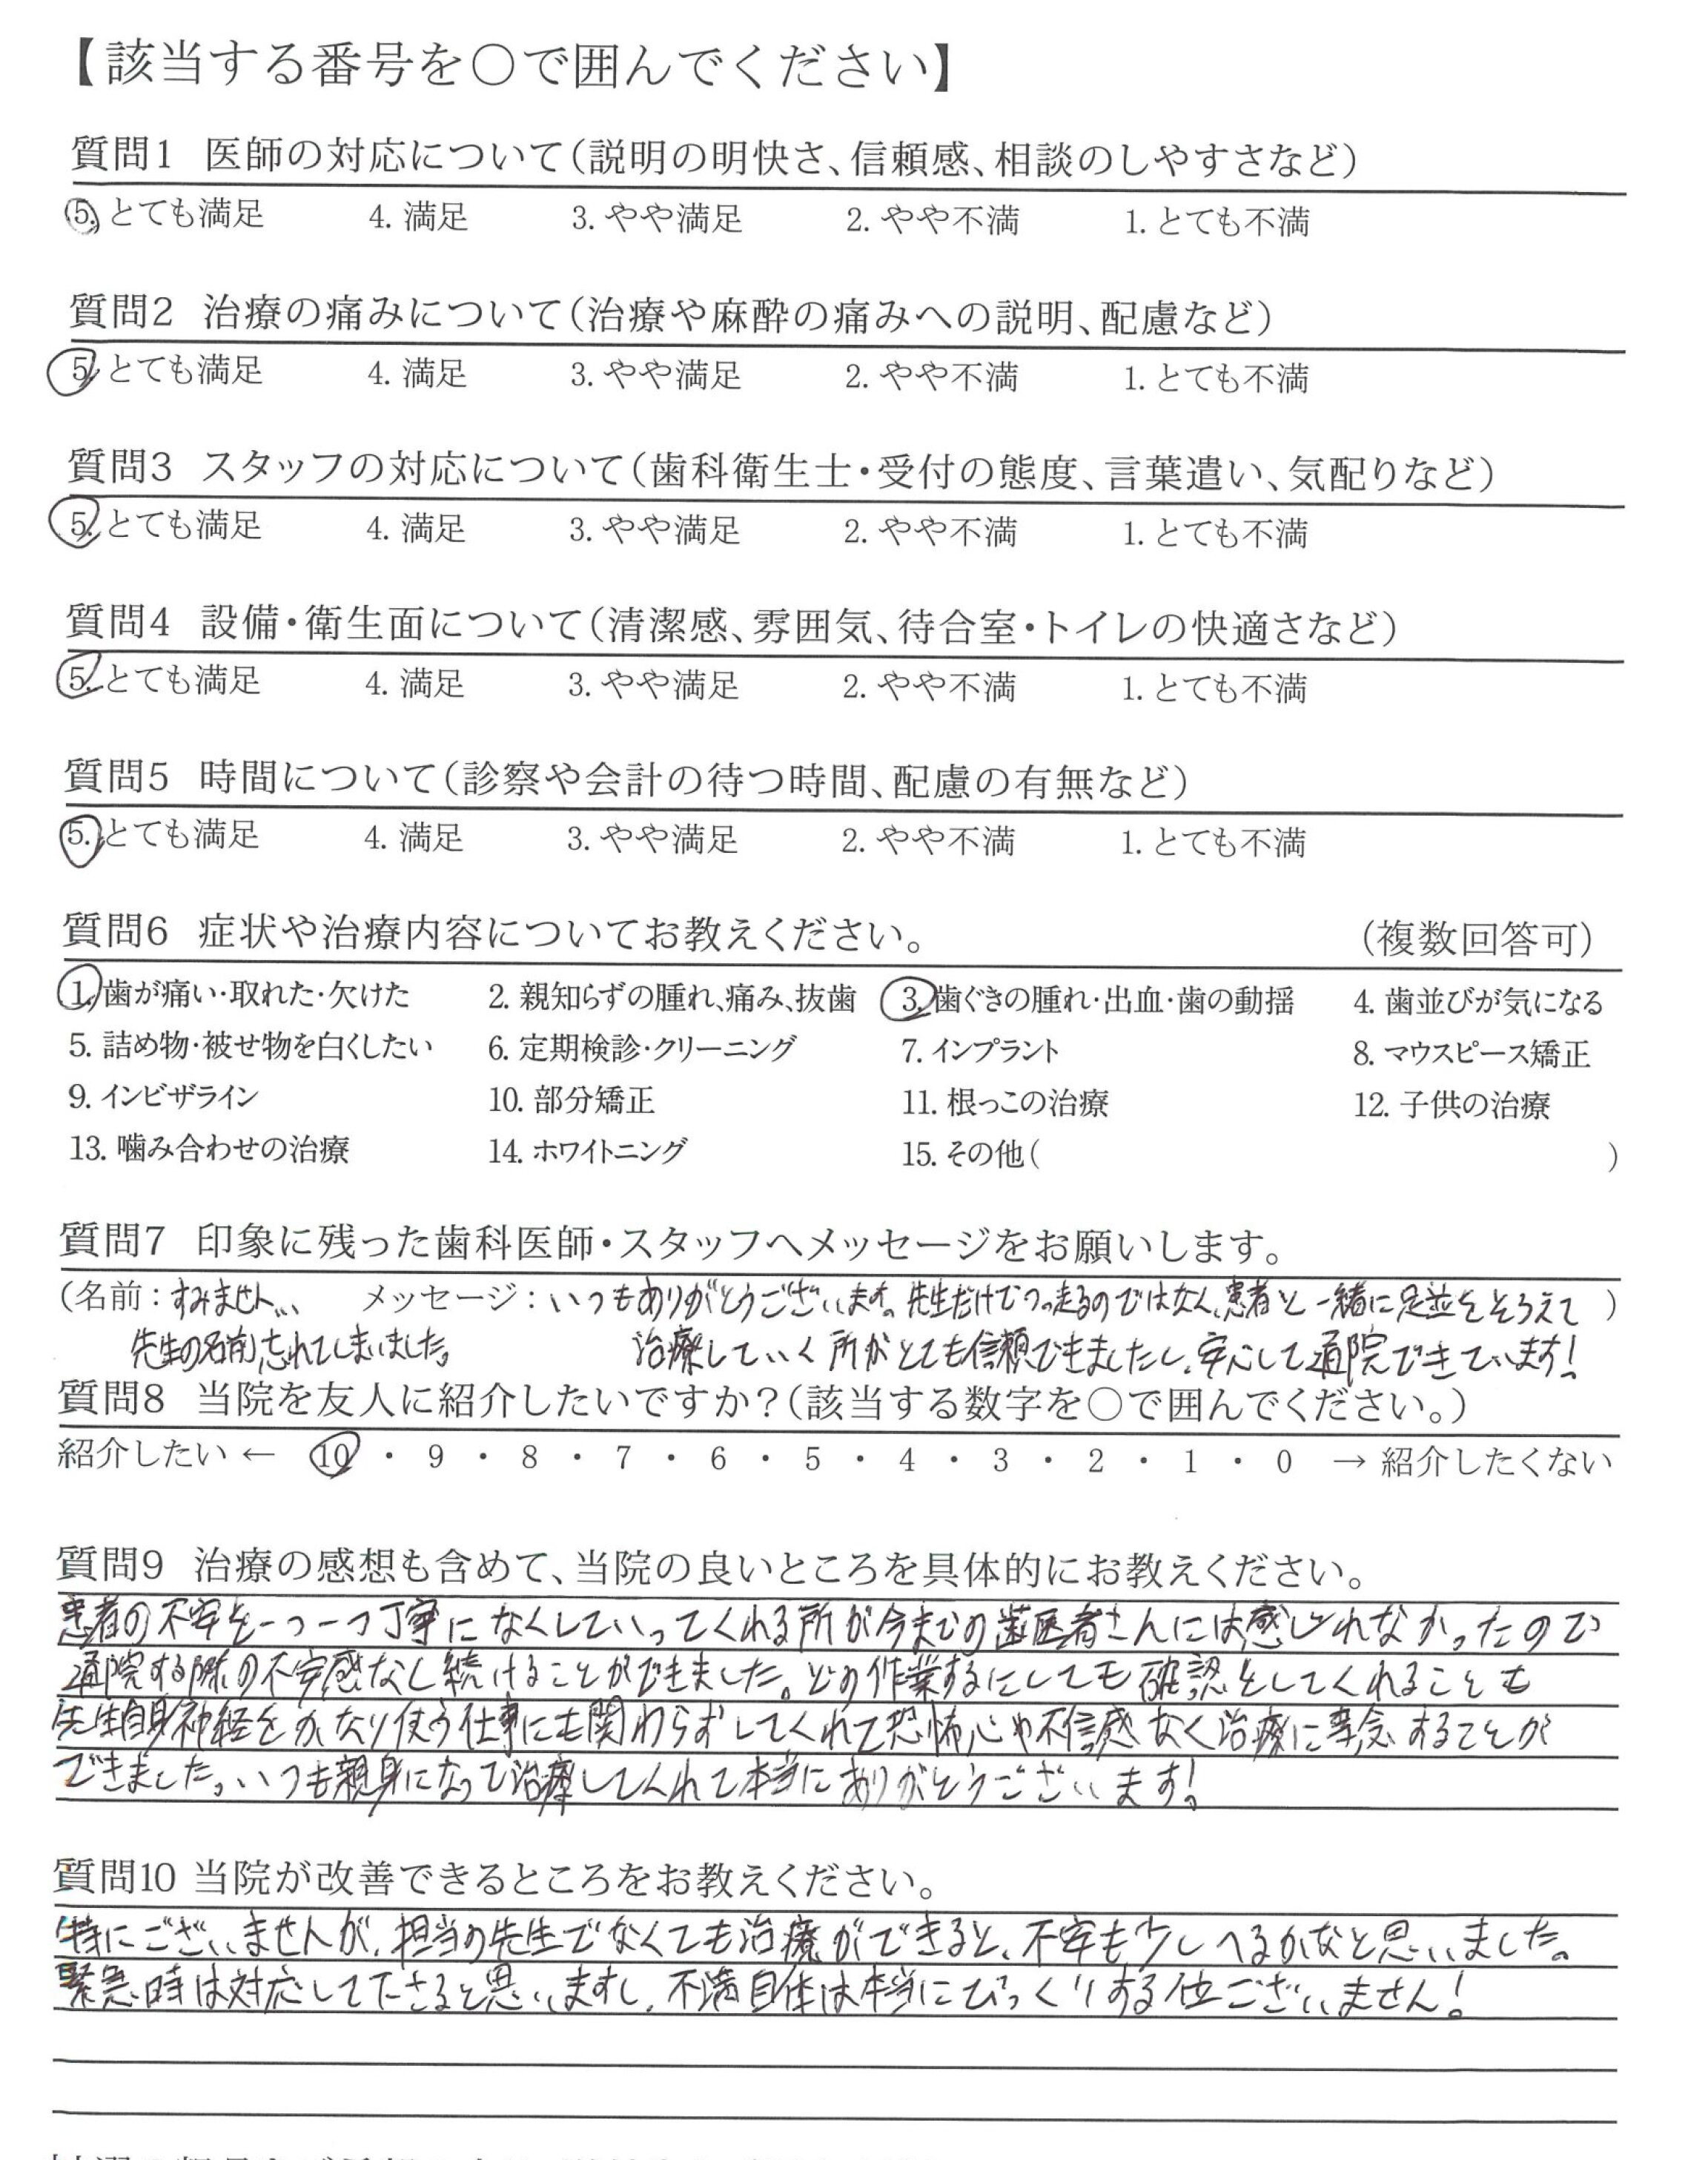 【該当する番号を○で囲んでください】
質問1 医師の対応について(説明の明快さ、信頼感、相談のしやすさなど)
5. とても満足 4. 満足 3. やや満足 2. やや不満 1. とても不満
質問2 治療の痛みについて(治療や麻酔の痛みへの説明、配慮など)
5. とても満足 4. 満足 3. やや満足 2. やや不満 1. とても不満
質問3 スタッフの対応について(歯科衛生士・受付の態度、言葉遣い、気配りなど)
5. とても満足 4. 満足 3. やや満足 2. やや不満 1. とても不満
質問4 設備・衛生面について(清潔感、雰囲気、待合室・トイレの快適さなど)
5. とても満足 4. 満足 3. やや満足 2. やや不満 1. とても不満
質問5 時間について(診察や会計の待つ時間、配慮の有無など)
5. とても満足 4. 満足 3. やや満足 2. やや不満 1. とても不満
質問6 症状や治療内容についてお教えください。 (複数回答可)
1. 歯が痛い・取れた・欠けた 2. 親知らずの腫れ、痛み、抜歯 3. 歯ぐきの腫れ・出血・歯の動揺 4. 歯並びが気になる
5. 詰め物・被せ物を白くしたい 6. 定期検診・クリーニング 7. インプラント 8. マウスピース矯正
9. インビザライン 10. 部分矯正 11. 根っこの治療 12. 子供の治療
13. 噛み合わせの治療 14. ホワイトニング 15. その他( )
質問7 印象に残った歯科医師・スタッフへメッセージをお願いします。
(名前：すみません、、、 メッセージ：いつもありがとうございます。先生だけでつっ走るのではなく、患者と一緒に足並をそろえて )
先生の名前忘れてしまいました。 治療していく所がとても信頼できましたし、安心して通院できています！
質問8 当院を友人に紹介したいですか？(該当する数字を○で囲んでください。)
紹介したい ← 10 ・ 9 ・ 8 ・ 7 ・ 6 ・ 5 ・ 4 ・ 3 ・ 2 ・ 1 ・ 0 → 紹介したくない
質問9 治療の感想も含めて、当院の良いところを具体的にお教えください。
患者の不安を一つ一つ丁寧になくしていってくれる所が今までの歯医者さんには感じれなかったので
通院する際の不安感なし続けることができました。どの作業するにしても確認をしてくれることも
先生自身神経をかなり使う仕事にも関わらずしてくれて恐怖心や不信感なく治療に専念することが
できました。いつも親身になって治療してくれて本当にありがとうございます！
質問10 当院が改善できるところをお教えください。
特にございませんが、担当の先生でなくても治療ができると、不安も少しへるかなと思いました。
緊急時は対応して下さると思いますし、不満自体は本当にびっくりする位ございません！